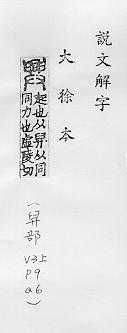 說文解字
大徐本
興
起也从舁从同
同力也虛陵切
(舁部
v3上
p9
a6)